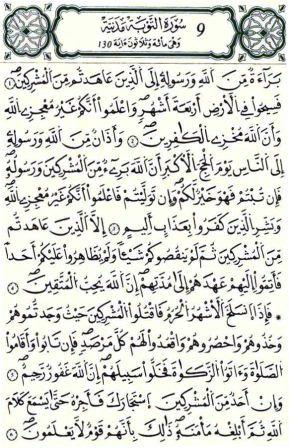 سُورَةُ التَّوْبَةِ مَدَنِيَّة 9
وَهْيَ مِائَة وَثَلَاثُونَ ءَايَة 130
بَرَآءَةٌ مِّنَ اَللَّهِ وَرَسُولِهِ إِلَى اَلَّذِينَ عَٰهَدتُّم مِّنَ اَلْمُشْرِكِينَ
فَسِيحُوا فِي اِلْأَرْضِ أَرْبَعَةَ أَشْهُرٍ وَاعْلَمُوا أَنَّكُمْ غَيْرُ مُعْجِزِي اِللَّهِ
وَأَنَّ اَللَّهَ مُخْزِي اِلْكَٰفِرِينَ وَأَذَانٌ مِّنَ اَللَّهِ وَرَسُولِهِ
إِلَى اَلنَّاسِ يَوْمَ اَلْحَجِّ اِلْأَكْبَرِ أَنَّ اَللَّهَ بَرِيءٌ مِّنَ اَلْمُشْرِكِينَ وَرَسُولُهُ
فَإِن تُبْتُمْ فَهُوَ خَيْرٌ لَّكُمْ وَإِن تَوَلَّيْتُمْ فَاعْلَمُوا أَنَّكُمْ غَيْرُ مُعْجِزِي اِللَّهِ
وَبَشِّرِ اِلَّذِينَ كَفَرُوا بِعَذَابٍ أَلِيمٍ إِلَّا اَلَّذِينَ عَٰهَدتُّم
مِّنَ اَلْمُشْرِكِينَ ثُمَّ لَمْ يَنقُصُوكُمْ شَيْـًٔا وَلَمْ يُظَٰهِرُوا عَلَيْكُمْ أَحَدًا
فَأَتِمُّوا إِلَيْهِمْ عَهْدَهُمْ إِلَىٰ مُدَّتِهِمْ إِنَّ اَللَّهَ يُحِبُّ اُلْمُتَّقِينَ
فَإِذَا اَنسَلَخَ اَلْأَشْهُرُ اُلْحُرُمُ فَاقْتُلُوا اُلْمُشْرِكِينَ حَيْثُ وَجَدتُّمُوهُمْ
وَخُذُوهُمْ وَاحْصُرُوهُمْ وَاقْعُدُوا لَهُمْ كُلَّ مَرْصَدٍ فَإِن تَابُوا وَأَقَامُوا
اُلصَّلَوٰةَ وَءَاتَوُا اُلزَّكَوٰةَ فَخَلُّوا سَبِيلَهُمْ إِنَّ اَللَّهَ غَفُورٌ رَّحِيمٌ
وَإِنْ أَحَدٌ مِّنَ اَلْمُشْرِكِينَ اَسْتَجَارَكَ فَأَجِرْهُ حَتَّىٰ يَسْمَعَ كَلَٰمَ
اَللَّهِ ثُمَّ أَبْلِغْهُ مَأْمَنَهُ ذَٰلِكَ بِأَنَّهُمْ قَوْمٌ لَّا يَعْلَمُونَ